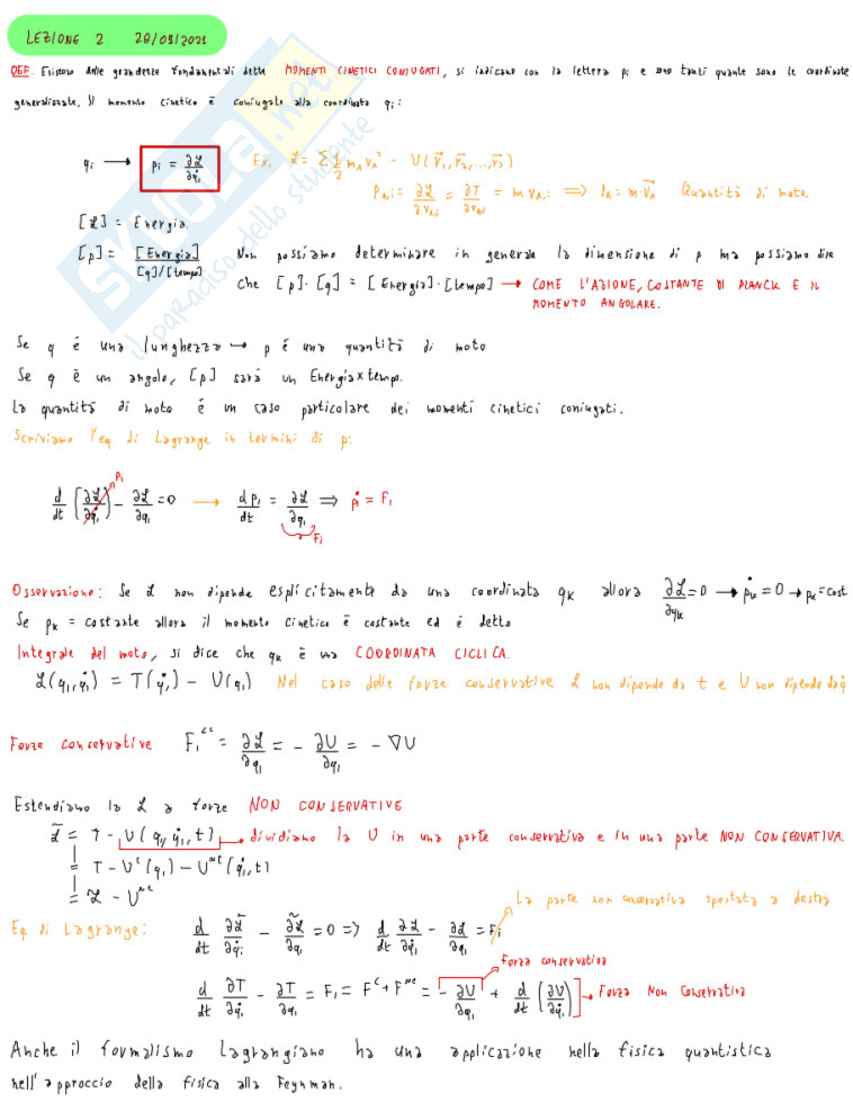 LEZIONE 2 28/09/2021
DEF. Esistono delle grandezze fondamentali dette MOMENTI CINETICI CONIUGATI, si indicano con la lettera pi e sono tanti quante sono le coordinate
generalizzate. Il momento cinetico è coniugato alla coordinata qi:
qi → pi = ∂L/∂q̇i Ex. L = Σ 1/2 mA vA² - U(r⃗1, r⃗2, ..., r⃗3)
PA,i = ∂L/∂vA,i = ∂T/∂vA,i = m vA,i ⟹ PA = m·v⃗A Quantità di moto.
[L] = Energia.
[p] = [Energia]/[q]/[tempo] Non possiamo determinare in generale la dimensione di p ma possiamo dire
che [p]·[q] = [Energia]·[tempo] → COME L'AZIONE, COSTANTE DI PLANCK E IL
MOMENTO ANGOLARE.
Se q è una lunghezza → p è una quantità di moto
Se q è un angolo, [p] sarà un Energia x tempo.
La quantità di moto è un caso particolare dei momenti cinetici coniugati.
Scriviamo l'eq di Lagrange in termini di p:
d/dt (∂L/∂q̇i) pi - ∂L/∂qi = 0 → dpi/dt = ∂L/∂qi Fi ⟹ ṗi = Fi
Osservazione: Se L non dipende esplicitamente da una coordinata qk allora ∂L/∂qk = 0 → ṗk = 0 → pk = cost
Se pk = costante allora il momento cinetico è costante ed è detto
Integrale del moto, si dice che qk è una COORDINATA CICLICA.
L(qi, q̇i) = T(q̇i) - U(qi) Nel caso delle forze conservative L non dipende da t e U non dipende da q̇
Forze conservative Fi = ∂L/∂qi = - ∂U/∂qi = - ∇U
Estendiamo la L a forze NON CONSERVATIVE
L̃ = T - U(qi, q̇i, t) → dividiamo la U in una parte conservativa e in una parte NON CONSERVATIVA.
= T - Uᶜ(qi) - Uⁿᶜ(q̇i, t)
= L - Uⁿᶜ
La parte non conservativa spostata a destra
Eq di Lagrange: d/dt ∂L̃/∂q̇i - ∂L̃/∂qi = 0 => d/dt ∂L/∂q̇i - ∂L/∂qi = Fi
Forza conservativa
d/dt ∂T/∂q̇i - ∂T/∂qi = Fi = Fᶜ + Fⁿᶜ = - ∂U/∂qi + d/dt (∂U/∂q̇i) → Forza Non Conservativa
Anche il formalismo Lagrangiano ha una applicazione nella fisica quantistica
nell'approccio della fisica alla Feynman.
SKUOLA.net
il paradiso dello studente